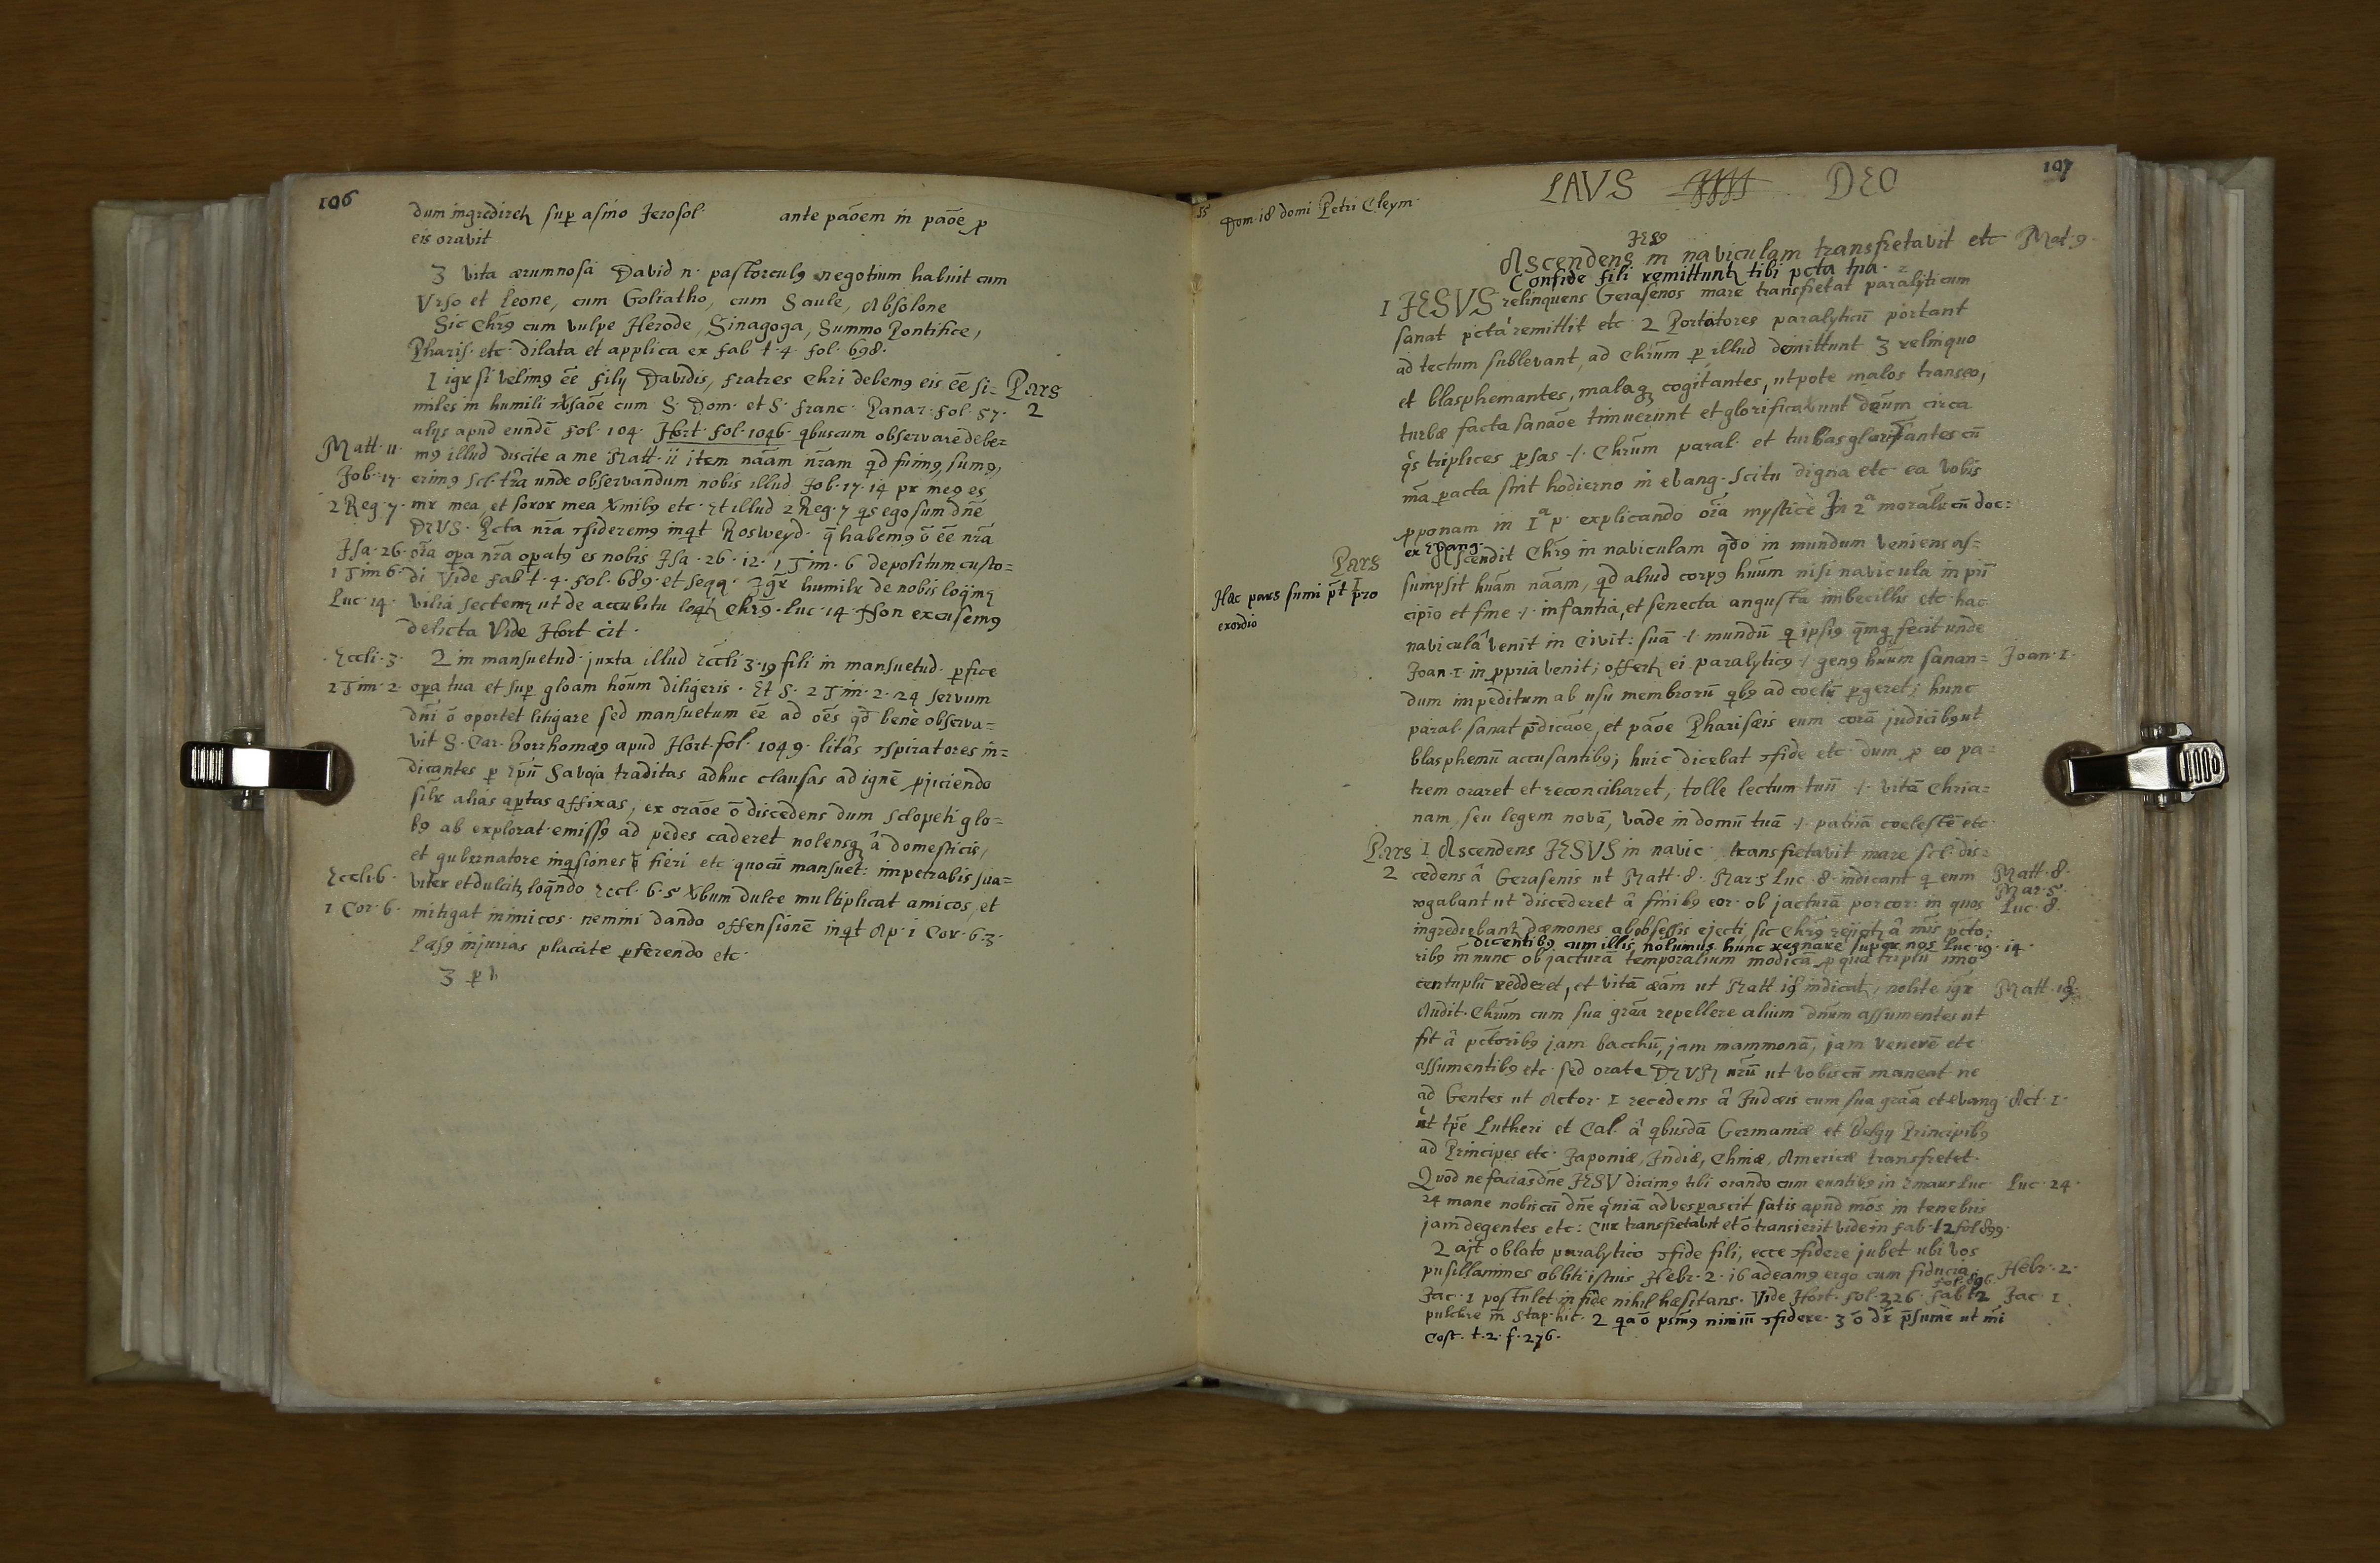 106
dum ingredireť sup asino Jerosol· ante paōem in paōe p
eis oravit
3 vita ærumnosa David n· pastorculꝰ negotium habuit cum
Urso et Leone, cum Goliatho, cum Saule, Absolone
Sic Chrꝰ cum vulpe Herode, Sinagoga, Summo Pontifice,
Pharis· etc· dilata et applica ex fab t·4· fol· 698·
1 igr si velimꝰ ēe filij Davidis, fratres Chri debemꝰ eis ēe si=
Pars
2
miles in humili cum S· Dom· et S· franc· Panar· fol· 57·
alijs apud eundē fol· 104· Hort· fol· 1046· qbuscum observare debe=
Matt· 11·
mꝰ illud discite a me Matt· ii item naām nrām qd fuimꝰ, sumꝰ,
Job· 17·
erimꝰ scl· trā unde observandum nobis illud Job· 17· 14 pr meꝰ es
2 Reg· 7·
mr mea, et soror mea Xmibꝰ etc· Et illud 2 Reg· 7 qs ego sum dnē
DEUS· Pcta nrā ɔsideremꝰ inqt Rosweyd· q̄ habemꝰ ō ēe nrā
Jsa· 26·
oīa opa nrā opatꝰ es nobis Jsa· 26· 12· 1 Tim· 6 depositum custo=
1 Tim 6·
di Vide fab t· 4· fol· 689· et seqq· Jgr humilr de nobis loqm̄ꝰ
Luc· 14·
vilia sectemꝰ ut de accubitu loqť Chrꝰ· Luc· 14· Non excusemꝰ
delicta Vide Hort cit·
Eccli· 3·
2 in mansuetud· juxta illud Eccli 3· 19 fili in mansuetud· pfice
2 Tim· 2·
opa tua et sup gloam hoūm diligeris· Et S· 2 Tim· 2· 24 servum
dnī ō oportet litigare sed mansuetum ēe ad oēs qd benè observa=
vit S· Car· Borrhomæꝰ apud Hort· fol· 1049· litās ɔspiratores in=
dicantes p Epū Savoja traditas adhuc clausas ad ignē pjiciendo
silr alias aptas affixas, ex oraōe ō discedens dum sclopeti glo=
bꝰ ab explorat· emissꝰ ad pedes caderet nolensq â domesticis,
et gubernatore inqsiones fieri etc· quocū mansuet: impetrabis sua=
Eccli· 6·
viter et dulcit loqndo Eccl· 6· 5 Xbum dulce multiplicat amicos, et
1 Cor· 6·
mitigat inimicos· nemini dando offensionē inqt Ap· i Cor· 6· 3·
læsꝰ injurias placate pferendo etc·
3 p h
107
55 Dom· 18 domi Petri Cleym·
LAVS DEO
JESꝰ
Ascendens in naviculam transfretavit etc Mat· 9·
Confide fili remittunť tibi pcta tua·
1 JESVS relinquens Gerasenos mare transfretat paralyticum
sanat pcta remittit etc· 2 Portatores paralyticū portant
ad tectum sublevant, ad Chrūm p illud demittunt 3 relinquo
et blasphemantes, malaq cogitantes, utpote malos transeo,
turbæ facta sanaōe timuerunt et glorificabunt deūm circa
qs triplices psas ·/· Chrūm paral· et turbas glorifantes cū
mā pacta sint hodierno in evang· scitu digna etc· ea vobis
pponam in 1ª p· explicando oīa mysticè Jn 2ª moralr cū doc:
Pars
1
ex Evang·
Ascendit Chrꝰ in naviculam qdo in mundum veniens as=
Hac pars sumi pt pro
exordio
sumpsit huām naām, qd aliud corpꝰ huūm nisi navicula in pri
cipio et fine ·/· infantia, et senecta angusta imbecillis etc· hac
naviculâ venit in Civit: suā ·/· mundū q ipsiꝰ qmq fecit unde
Joan· 1· in ppria venit; offerť ei paralyticꝰ ·/· genꝰ huūm sanan=
Joan· 1·
dum impeditum ab usu membrorū qbꝰ ad coelū pgeret; hunc
paral· sanat pdicaōe, et paōe Pharisæis eum corā judicibꝰ ut
blasphemū accusantibꝰ; huic dicebat ɔfide etc· dum p eo pa=
trem oraret et reconciliaret, tolle lectum tuū ·/· vitā Chria=
nam, seu legem novā, vade in domū tuā ·/· patriā coelestē etc·
Pars
2
1 Ascendens JESVS in navic· transfretavit mare scl· dis=
cedens â Gerasenis ut Matt· 8· Mar 5 Luc· 8· indicant q eum
Matt· 8·
Mar· 5·
Luc· 8·
rogabant ut discederet â finibꝰ eor· ob jacturā porcor: in quos
ingrediebant dæmones ab obsessis ejecti, sic Chrꝰ rejicit â mīs pcto:
dicentibꝰ cum illis nolumus hunc regnare super nos Luc· 19· 14·
ribꝰ m̄ nunc ob jacturā temporalium modicā, p qua triplū imo
centuplū redderet, et vitā æām ut Matt 19 indicat, nolite igr
Matt· 19·
Audit· Chrūm cum sua grāa repellere alium dnūm assumentes ut
fit â pctoribꝰ jam bacchū, jam mammonā, jam venerē etc
assumentibꝰ etc· sed orate DEUM nrū ut vobiscū maneat ne
ad Gentes ut Actor· 1 recedens â Judæis cum sua grāa et evang·
Act· 1·
ut tpē Lutheri et Cal· â qbusdā Germaniæ et Belgij Principibꝰ
ad Principes etc· Japoniæ, Indiæ, Chinæ, Americæ transfretet·
Quod ne facias dnē JESV dicimꝰ tibi orando cum euntibꝰ in Emaus Luc·
Luc· 24·
24 mane nobiscū dnē qniā advesperascit satis apud mōs in tenebris
jam degentes etc: Cur transfretabit et ō transierit vide in fab· t 2 fol 899·
2 ajt oblato paralytico ɔfide fili, ecce ɔfidere jubet ubi vos
pusillanimes obliti istius Hebr· 2· 16 adeamꝰ ergo cum fiducia
Hebr· 2·
fol· 896·
Jac· 1 postulet in fide nihil hæsitans· Vide Hort· fol· 326· fab t 2
Jac· 1
pulchre m̄ Stap· hic· 2 qa ō psmꝰ nimiū ɔfidere· 3 ō dr psumè ut mi
Cost· t· 2· f· 276·